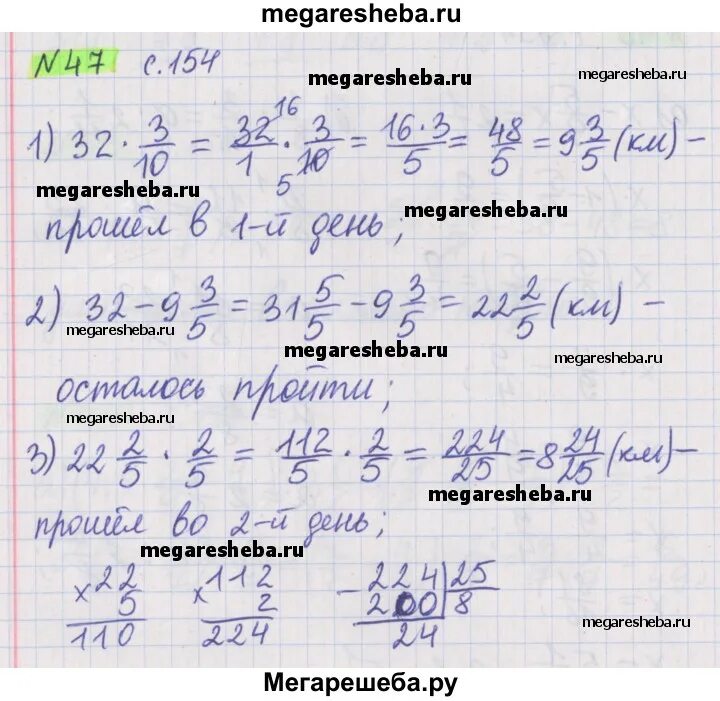 megaresheba.ru
№47 с.154
megaresheba.ru megaresheba.ru
1) 32 · 3/10 = 32/1 · 3/10 = 16·3/5 = 48/5 = 9 3/5 (км) –
16
5
megaresheba.ru megaresheba.ru
прошёл в 1-й день;
2) 32 – 9 3/5 = 31 5/5 – 9 3/5 = 22 2/5 (км) –
megaresheba.ru megaresheba.ru megaresheba.ru
осталось пройти;
megaresheba.ru
3) 22 2/5 · 2/5 = 112/5 · 2/5 = 224/25 = 8 24/25 (км) –
megaresheba.ru
прошёл во 2-й день;
megaresheba.ru
×22 ×112 –224|25
5 2 200|8
110 224 24
megaresheba.ru
Мегарешеба.ру